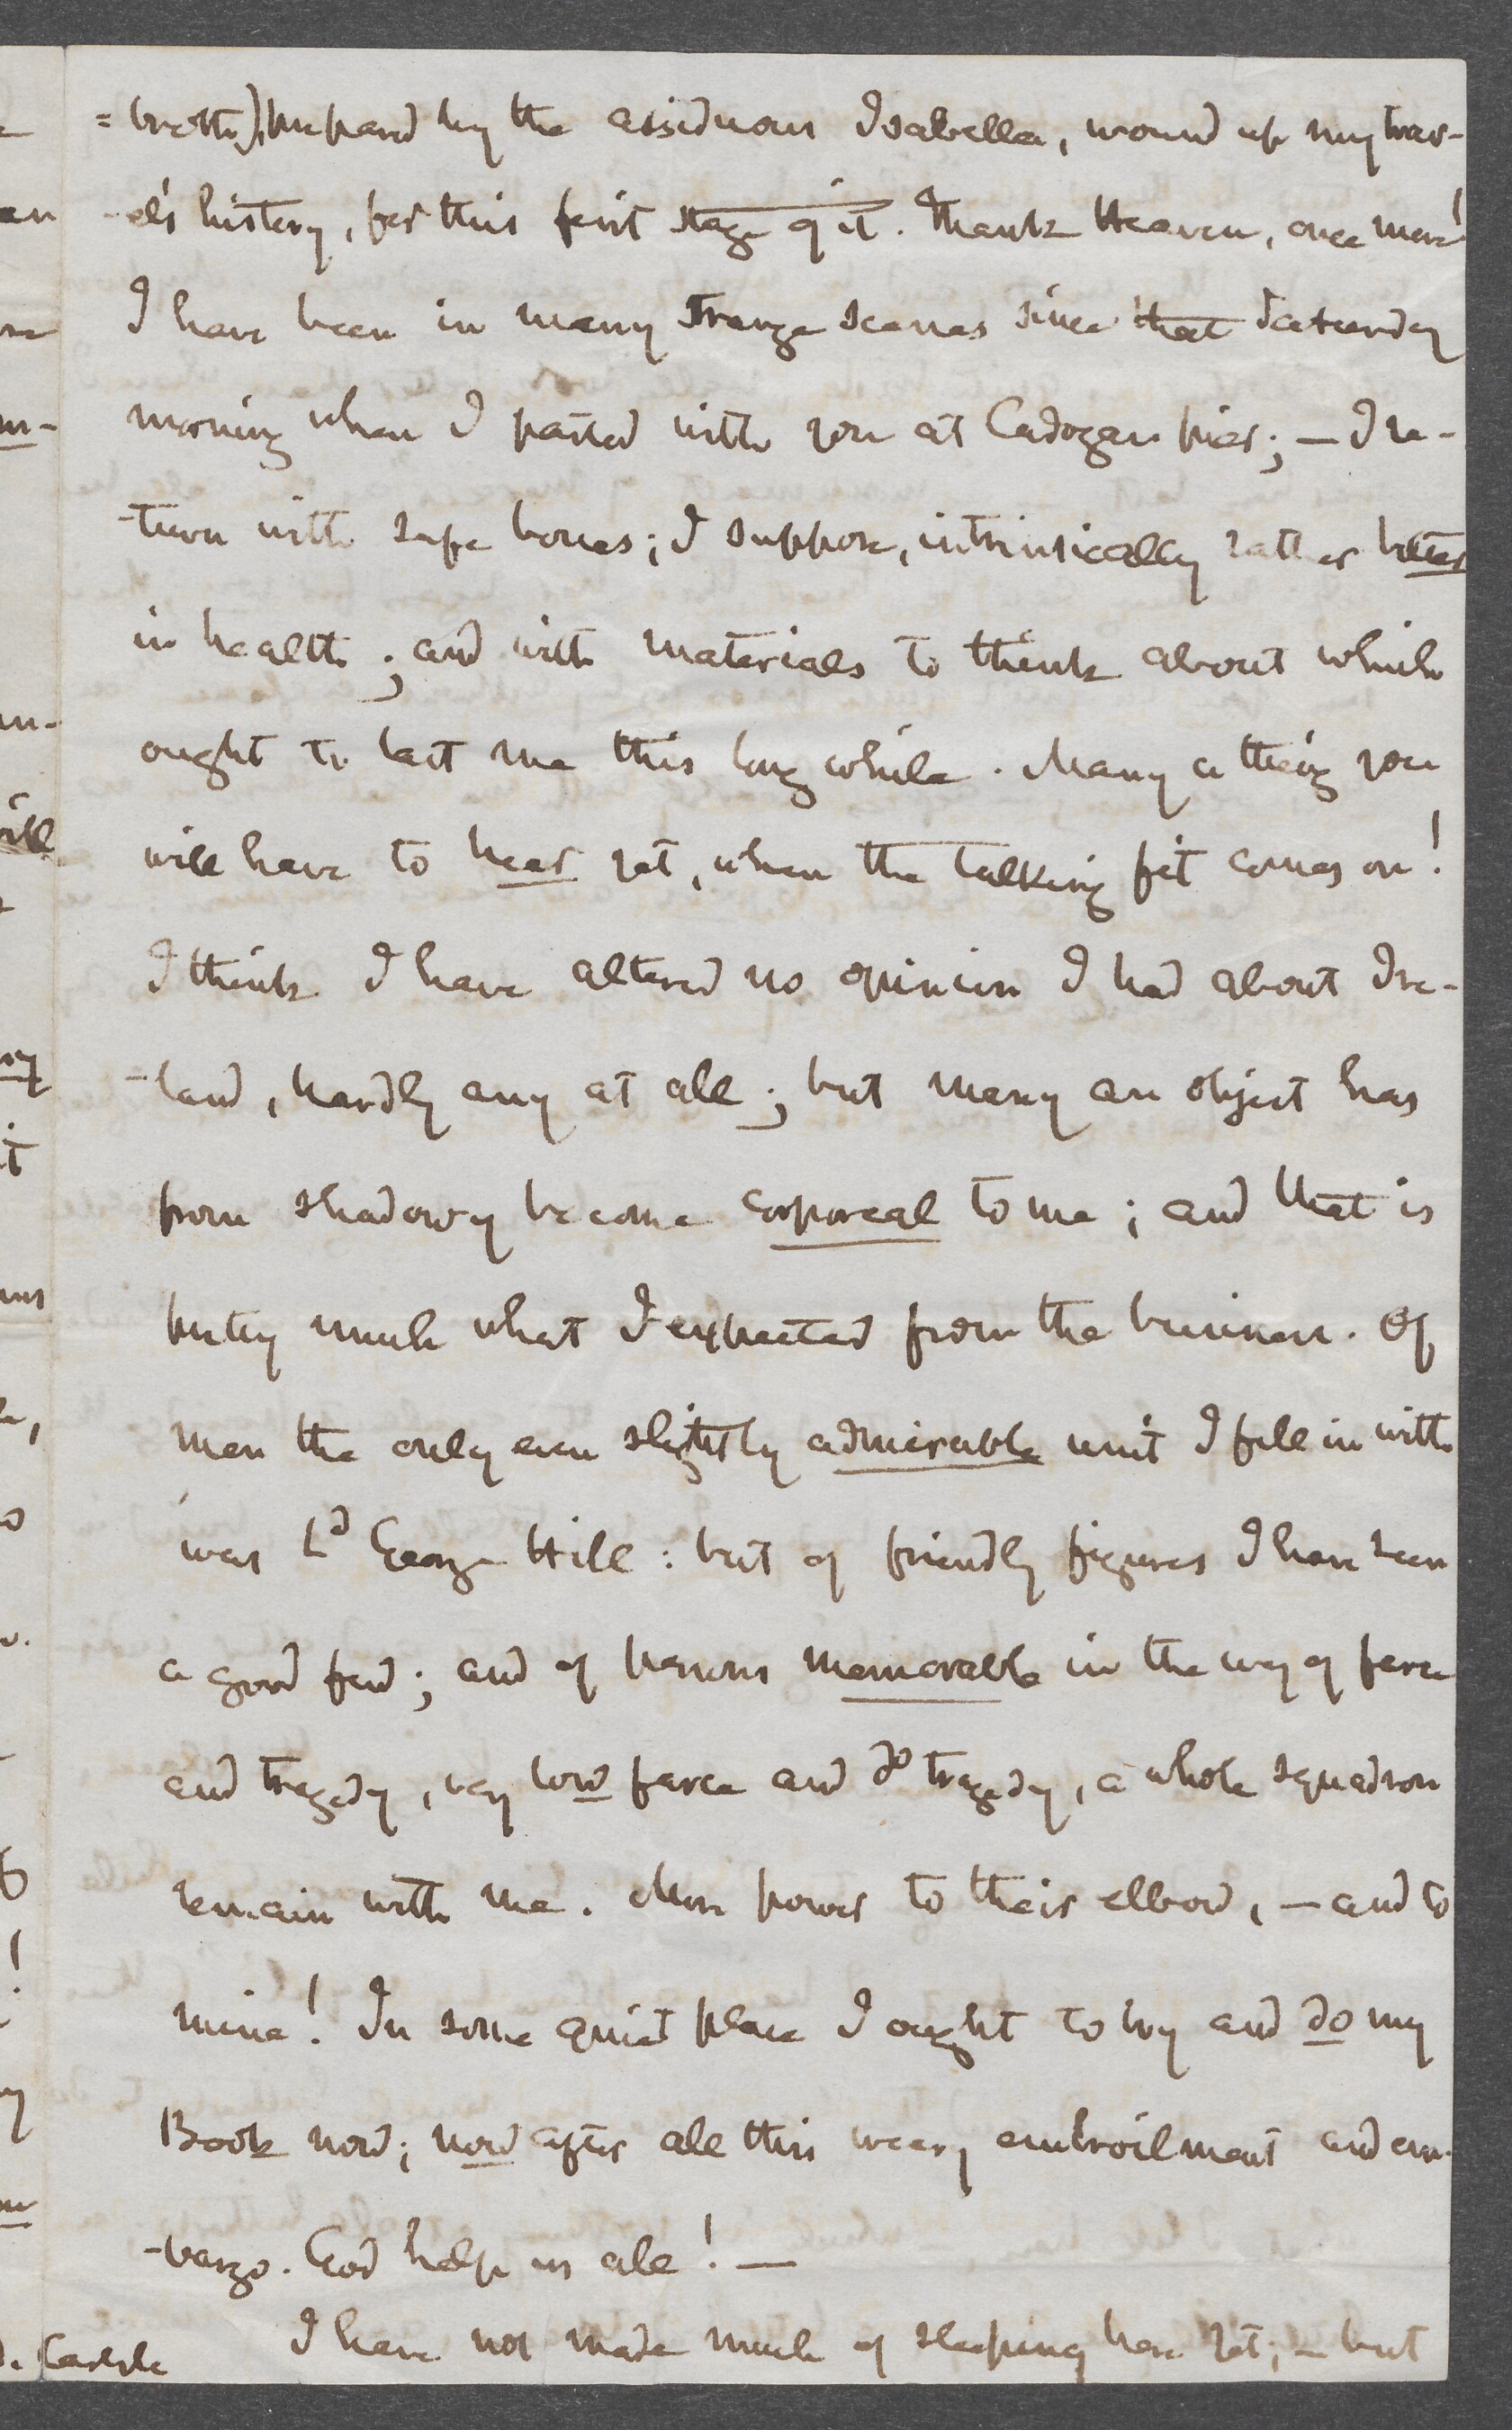 =broth), prepared by the assiduous Isabella, wound up my trav-
-el's history, for this first stage of it. Thank Heaven, once more!
I have been in many strange scenes since that Saturday
morning when I parted with you at Cadogan pier; — I re-
-turn with safe bones; I suppose, intrinsically rather better
in health; and with materials to think about which
ought to last me this long while. Many a thing you
will have to hear yet, when the talking fit comes on!
I think I have altered no opinion I had about Ire-
-land, hardly any at all; but many an object has
from shadowy become corporeal to me; and that is
pretty much what I expected from the business. Of
men the only even slightly admirable unit I fell in with
was Ld George Hill: but of friendly figures I have seen
a good few; and of persons memorable in the way of farce
and tragedy, very low farce and do tragedy, a whole squadron
remain with me. More power to their elbow, — and to
mine! In some quiet place I ought to try and do my
Book now; now after all this weary embroilment and em-
-bargo. God help us all! —
I have not made much of sleeping here yet; — but
Carlyle